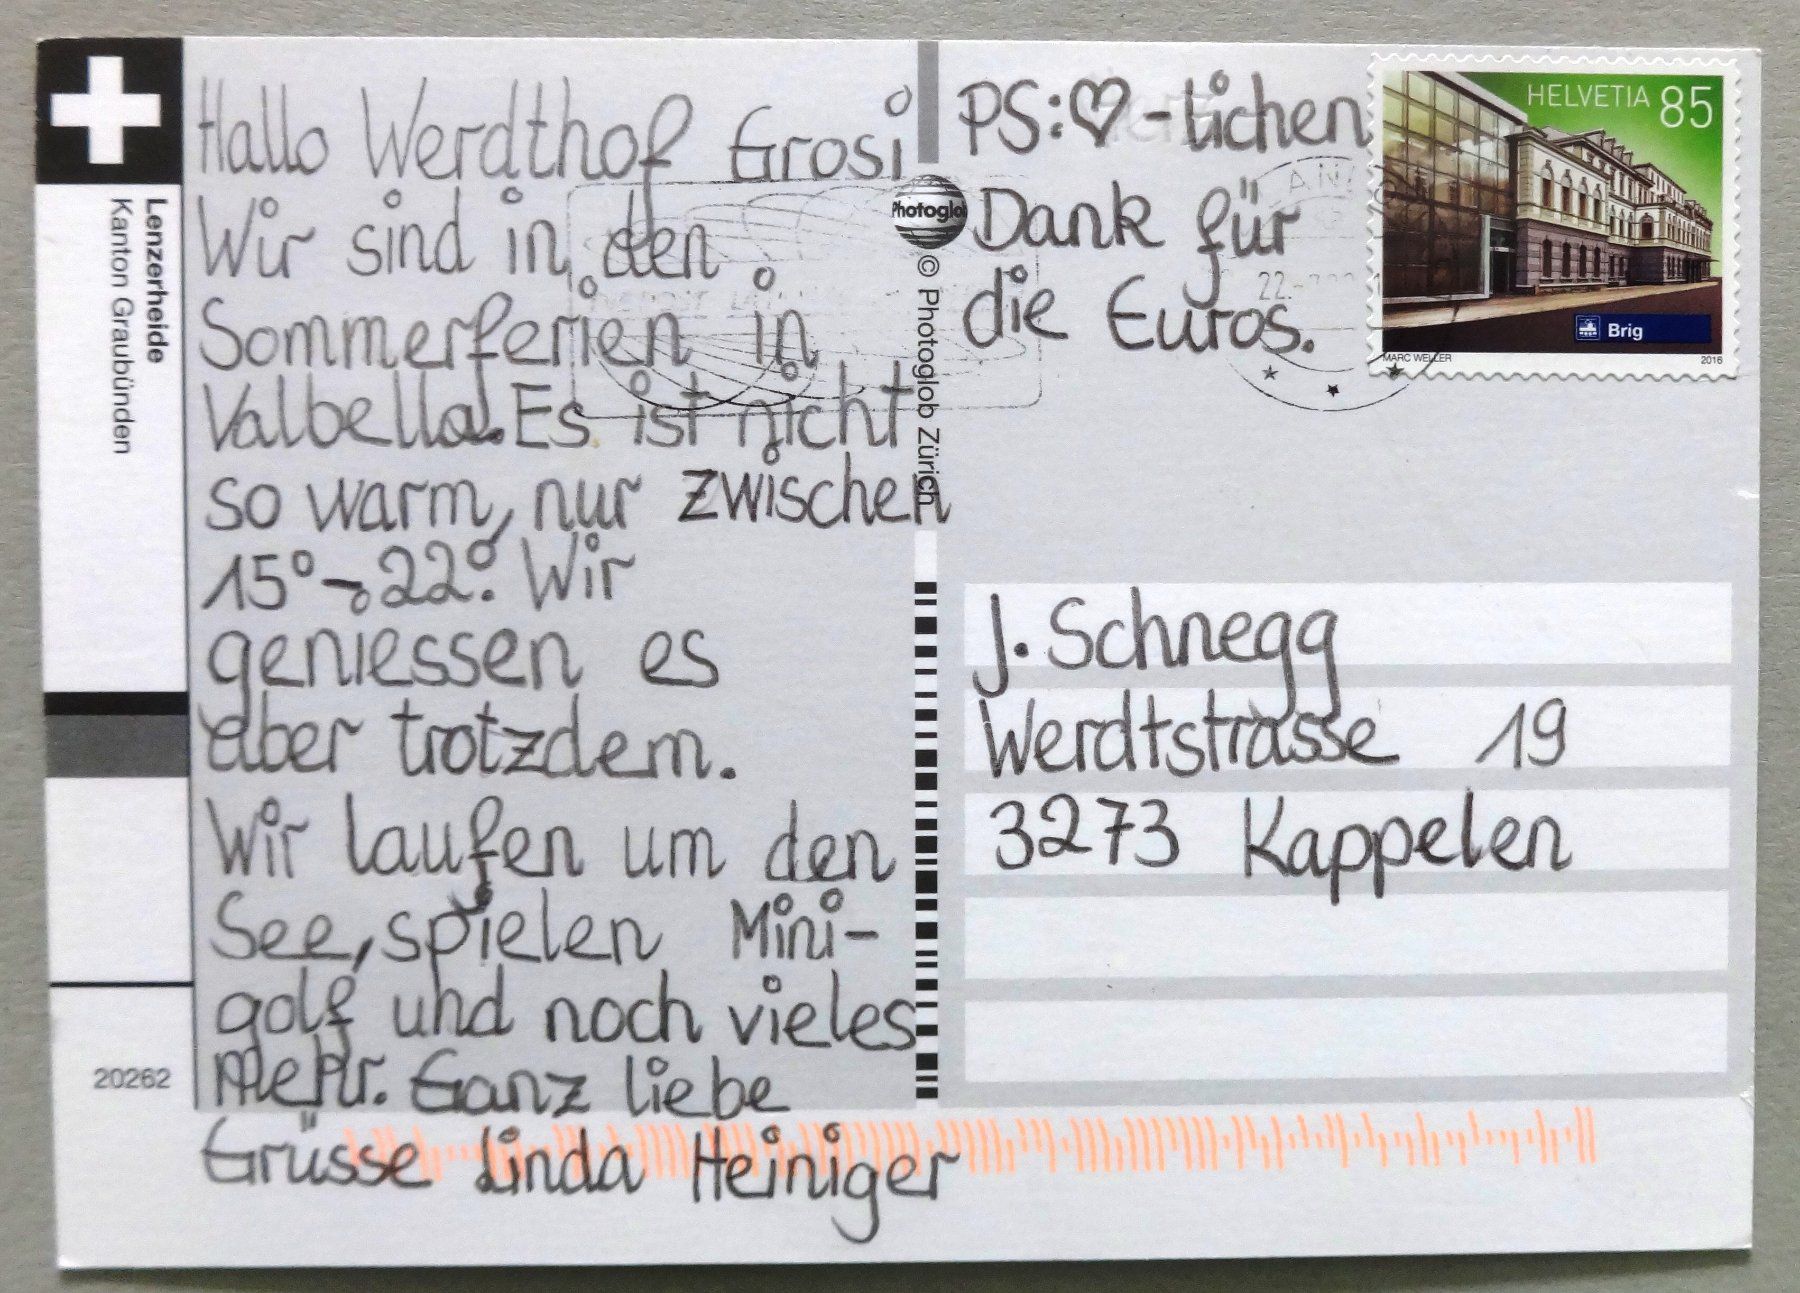 Lenzerheide
Kanton Graubünden
20262
Hallo Werdthof Grosi
Wir sind in den
Sommerferien in
Valbella. Es ist nicht
so warm, nur zwischen
15°-22°. Wir
geniessen es
aber trotzdem.
Wir laufen um den
See, spielen Mini-
golf und noch vieles
mehr. Ganz liebe
Grüsse Linda Heiniger
Photoglob
© Photoglob Zürich
PS:♡-lichen
Dank für
die Euros.
HELVETIA 85
Brig
MARC WELLER 2016
22.
J. Schnegg
Werdtstrasse 19
3273 Kappelen